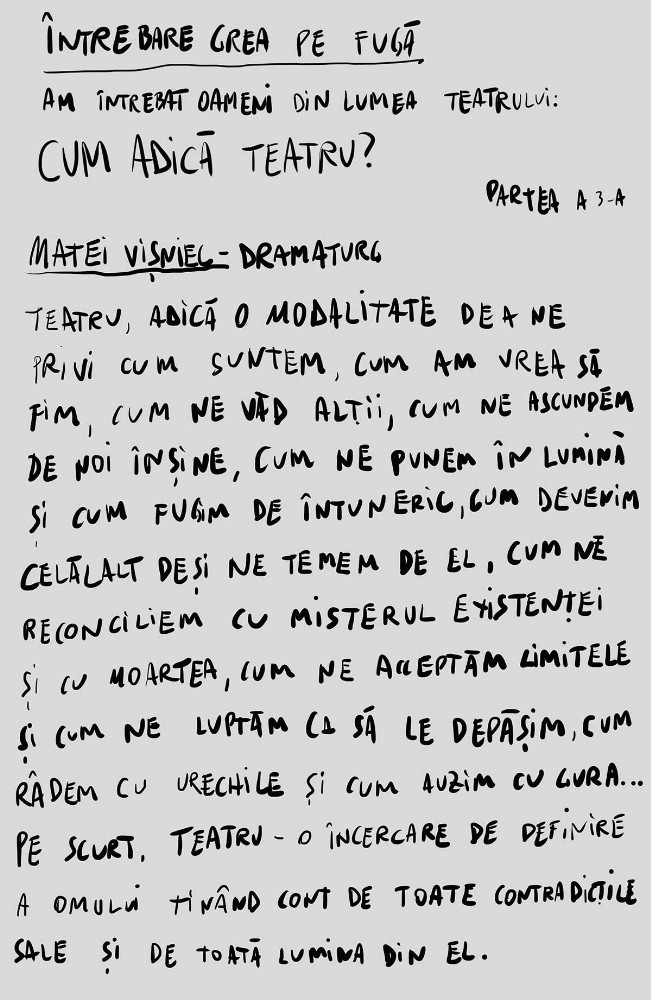 ÎNTREBARE GREA PE FUGĂ
AM ÎNTREBAT OAMENI DIN LUMEA TEATRULUI:
CUM ADICĂ TEATRU?
PARTEA A 3-A
MATEI VIȘNIEC - DRAMATURG
TEATRU, ADICĂ O MODALITATE DE A NE
PRIVI CUM SUNTEM, CUM AM VREA SĂ
FIM, CUM NE VĂD ALȚII, CUM NE ASCUNDEM
DE NOI ÎNȘINE, CUM NE PUNEM ÎN LUMINĂ
ȘI CUM FUGIM DE ÎNTUNERIC, CUM DEVENIM
CELĂLALT DEȘI NE TEMEM DE EL, CUM NE
RECONCILIEM CU MISTERUL EXISTENȚEI
ȘI CU MOARTEA, CUM NE ACCEPTĂM LIMITELE
ȘI CUM NE LUPTĂM CA SĂ LE DEPĂȘIM, CUM
RÂDEM CU URECHILE ȘI CUM AUZIM CU GURA...
PE SCURT, TEATRU - O ÎNCERCARE DE DEFINIRE
A OMULUI ȚINÂND CONT DE TOATE CONTRADICȚIILE
SALE ȘI DE TOATĂ LUMINA DIN EL.